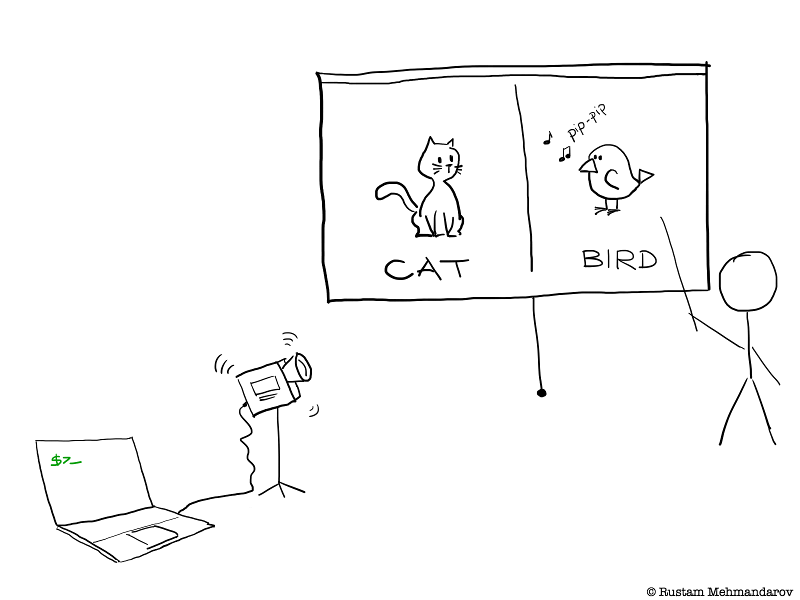 pip-pip
CAT
BIRD
$>_
© Rustam Mehmandarov